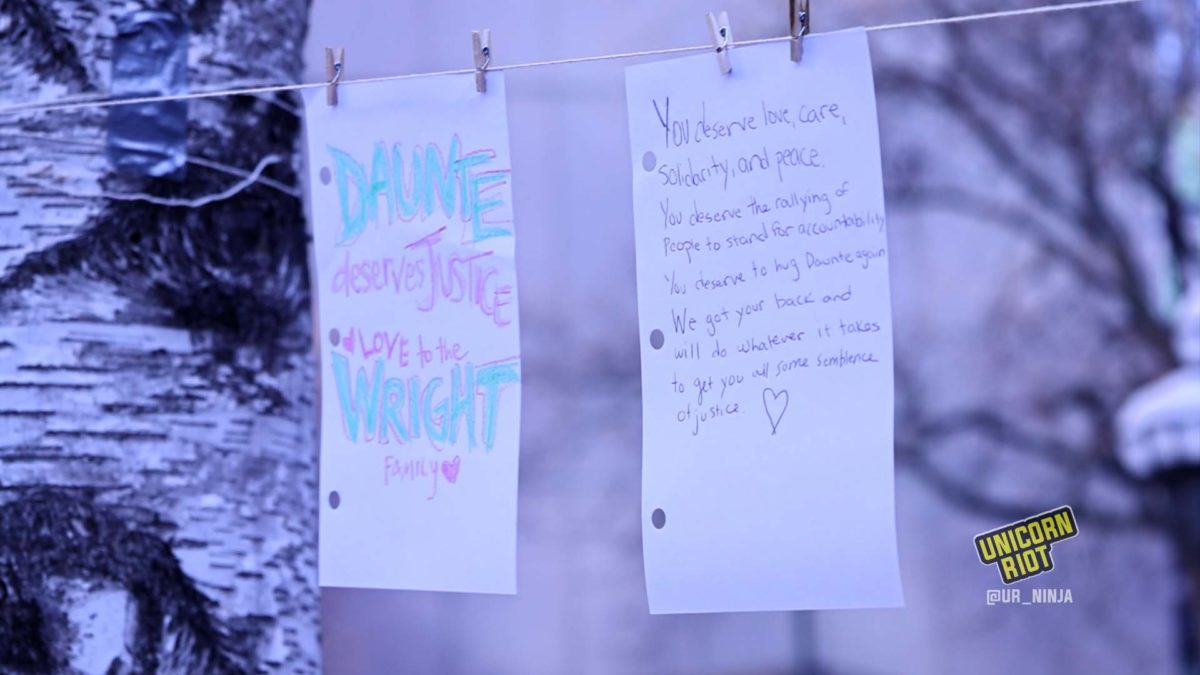 DAUNTE
deserves JUSTICE
& LOVE to the
WRIGHT
FAMILY
You deserve love, care,
solidarity, and peace.
You deserve the rallying of
People to stand for accountability
You deserve to hug Daunte again
We got your back and
will do whatever it takes
to get you all some semblence
of justice.
UNICORN
RIOT
@UR_NINJA